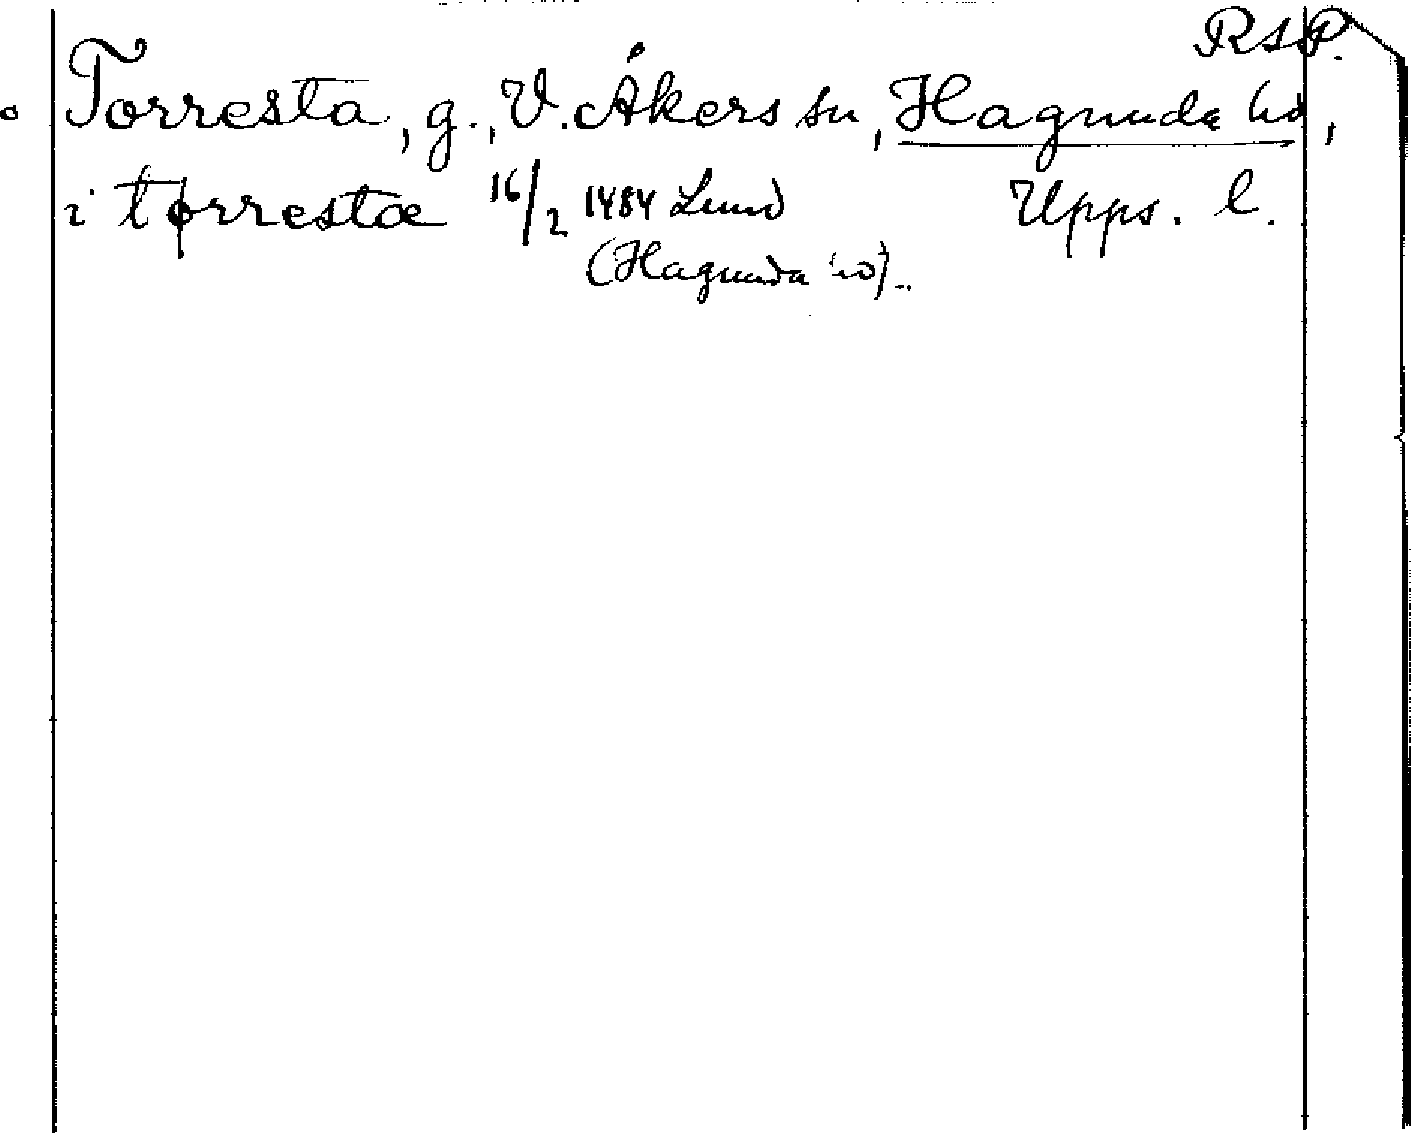 RSP.
Torresta, g., V. Åkers sn, Hagunda hd,
i tørrestæ 16/2 1484 Lund Upps. l.
(Hagunda hd)..